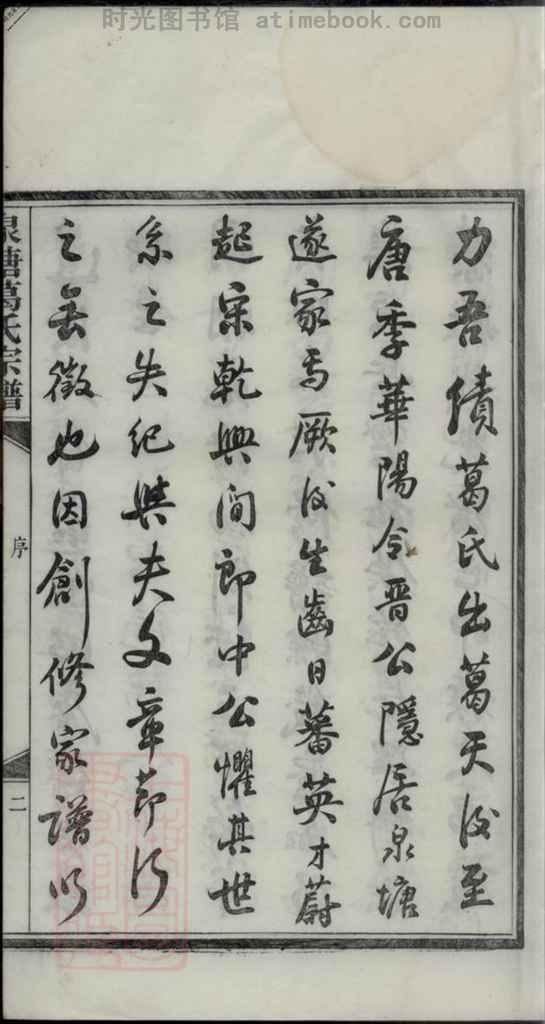 时光图书馆 atimebook.com
力吾績葛氏出葛天後至
唐季華陽令晉公隱居泉塘
遂家焉厥後生齒日蕃英才蔚
起宋乾興间郎中公懼其世
系之失纪與夫文章節行
之無徵也因創修家譜以
泉塘葛氏宗譜
序
二